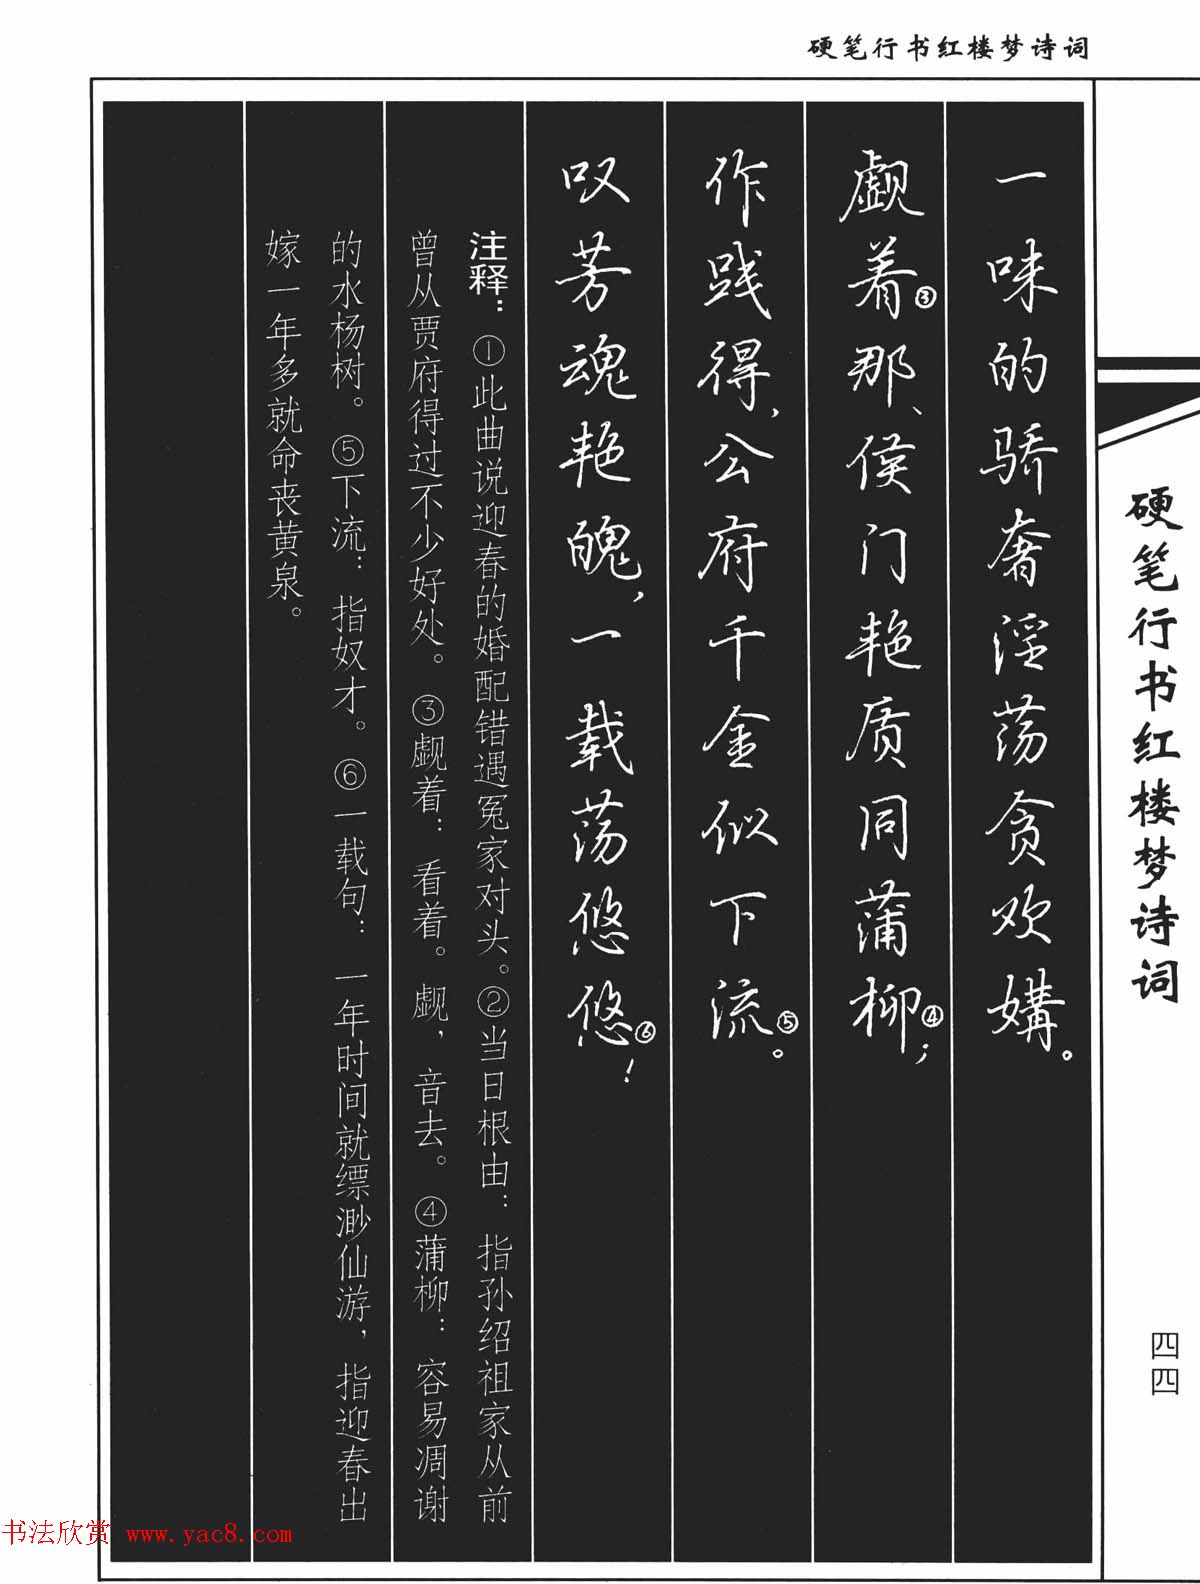 硬笔行书红楼梦诗词
一味的骄奢淫荡贪欢媾。
觑着③那、侯门艳质同蒲柳④；
作践得，公府千金似下流⑤。
叹芳魂艳魄，一载荡悠悠⑥！
注释：①此曲说迎春的婚配错遇冤家对头。②当日根由：指孙绍祖家从前
曾从贾府得过不少好处。③觑着：看着。觑，音去。④蒲柳：容易凋谢
的水杨树。⑤下流：指奴才。⑥一载句：一年时间就缥渺仙游，指迎春出
嫁一年多就命丧黄泉。
硬笔行书红楼梦诗词
四四
书法欣赏 www.yac8.com